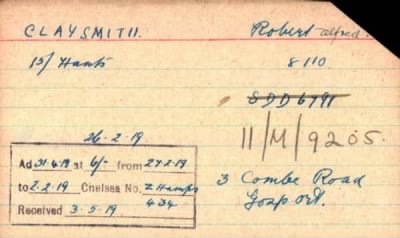 CLAYSMITH. Robert alfred.
15/ Hants 8110.
SDD6791
26-2-19 11/M/9205.
Ad 31.4.19 at 6/- from 27.2.19
to 2.2.19 Chelsea No. 2 Hamps
434
Received 3-5-19
3 Combe Road
Gosport.